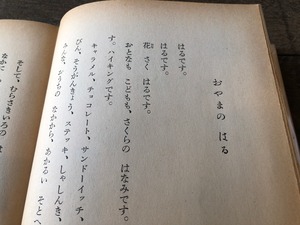 おやまの はる
はるです。
はるです。
花 さく はるです。
おとなも こどもも、さくらの はなみです。
す。ハイキングです。
キャラメル、チョコレート、サンドーイッチ、
びん、そうがんきょう、ステッキ、しゃしんき、
みんな、おうちの なかから、あかるい そとへ
そして、むらさきいろの
なかに